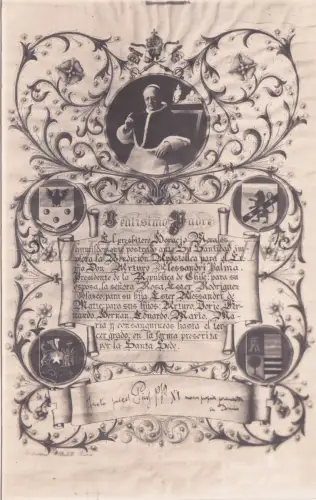 Beatísimo Padre
El presbítero Horacio Morales
humildemente postrado ante Su Santidad, im
plora la Bendición Apostólica para el Ex
mo Don Arturo Alessandri Palma,
Presidente de la República de Chile; para su
esposa la señora Rosa Ester Rodríguez
Velasco; para su hija Ester Alessandri de
Matte; para sus hijos Arturo, Jorje, Fer
nando, Hernan, Eduardo, Mario, Ma
ría y consanguíneos hasta el ter
cer grado, en la forma prescrita
por la Santa Sede.
Pius PP XI